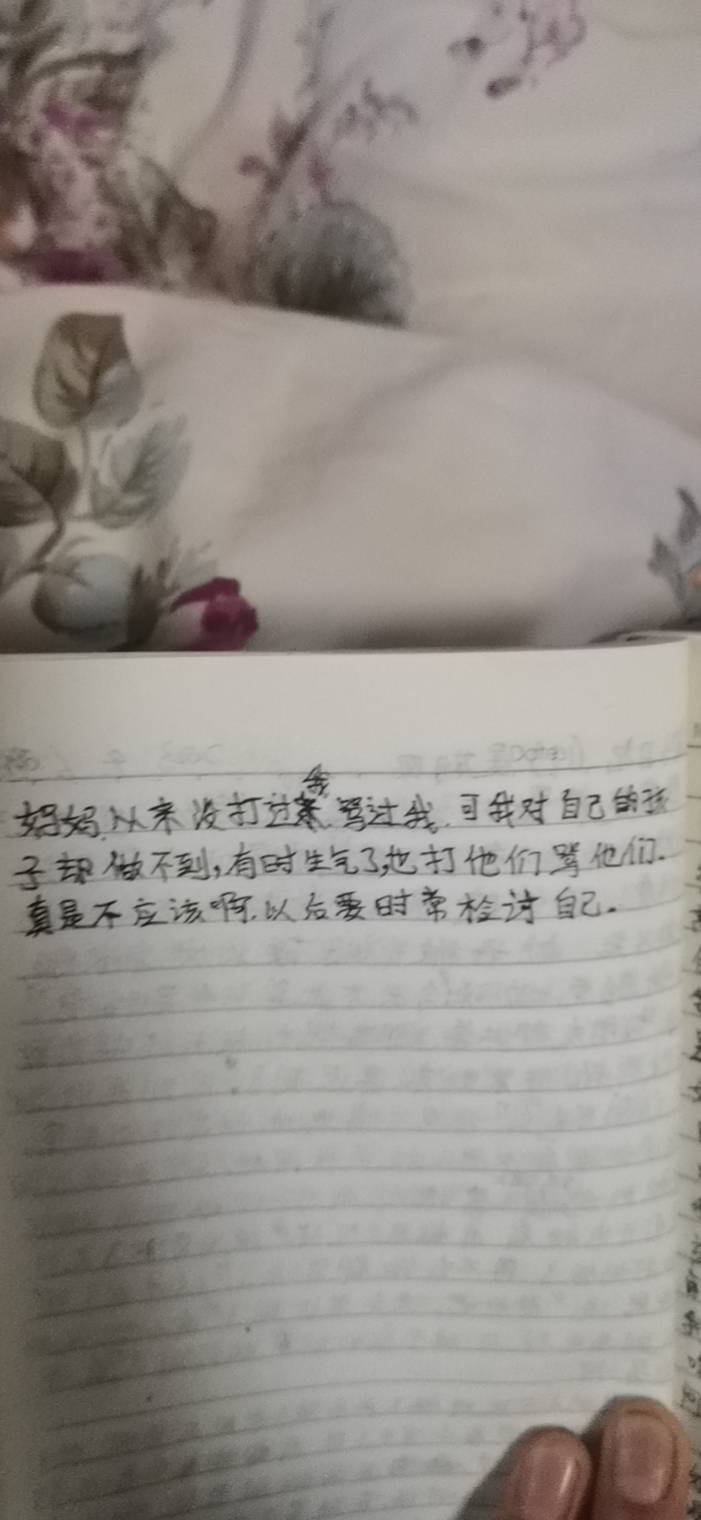 妈妈从来没打过我骂过我.可我对自己的孩
子却做不到,有时生气了,也打他们骂他们.
真是不应该啊.以后要时常检讨自己.